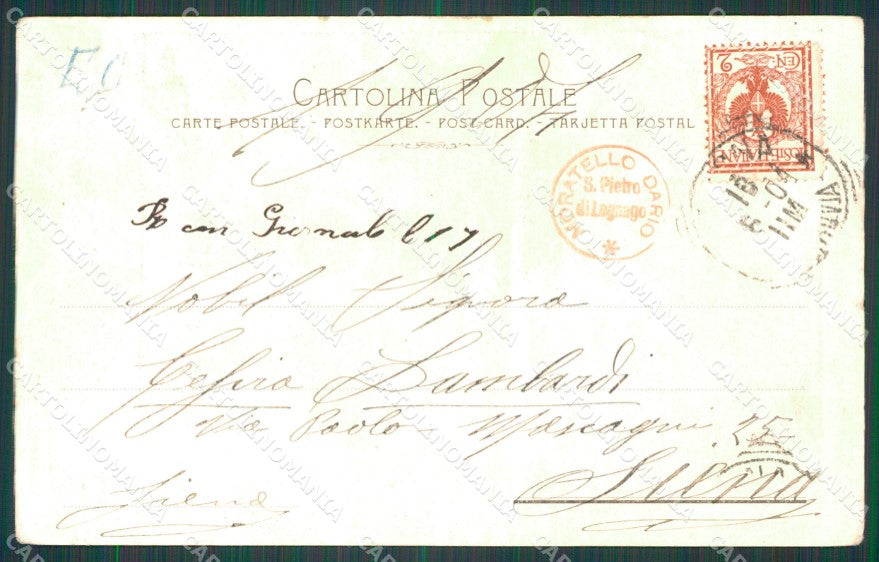 CARTOLINA POSTALE
CARTE POSTALE. - POSTKARTE. - POST-CARD. - TARJETTA POSTAL
MORATELLO DARIO
S. Pietro
di Legnago
*
con Giornale 17
Nobil Signora
Zefira Lambardi
Via Paolo Mascagni 25
Siena
Siena
CARTOLINOMANIA